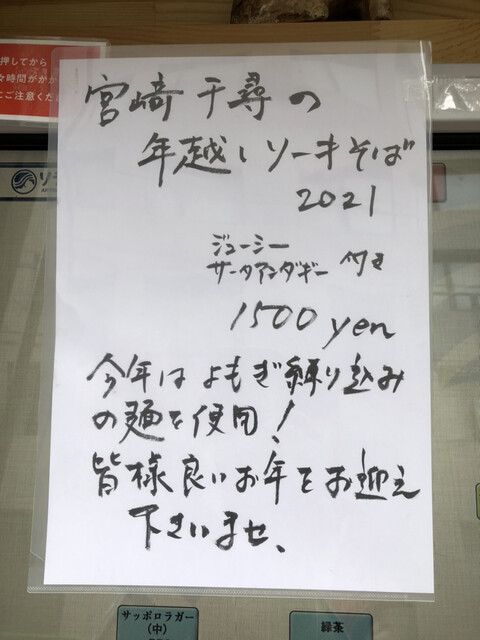 押してから
々時間がかか
にご注意くだ
宮﨑千尋の
年越しソーキそば
2021
ジューシー
サータアンダギー 付き
1500 yen
今年はよもぎ練り込み
の麺を使用!
皆様良いお年をお迎え
下さいませ、
サッポロラガー
(中)
緑茶